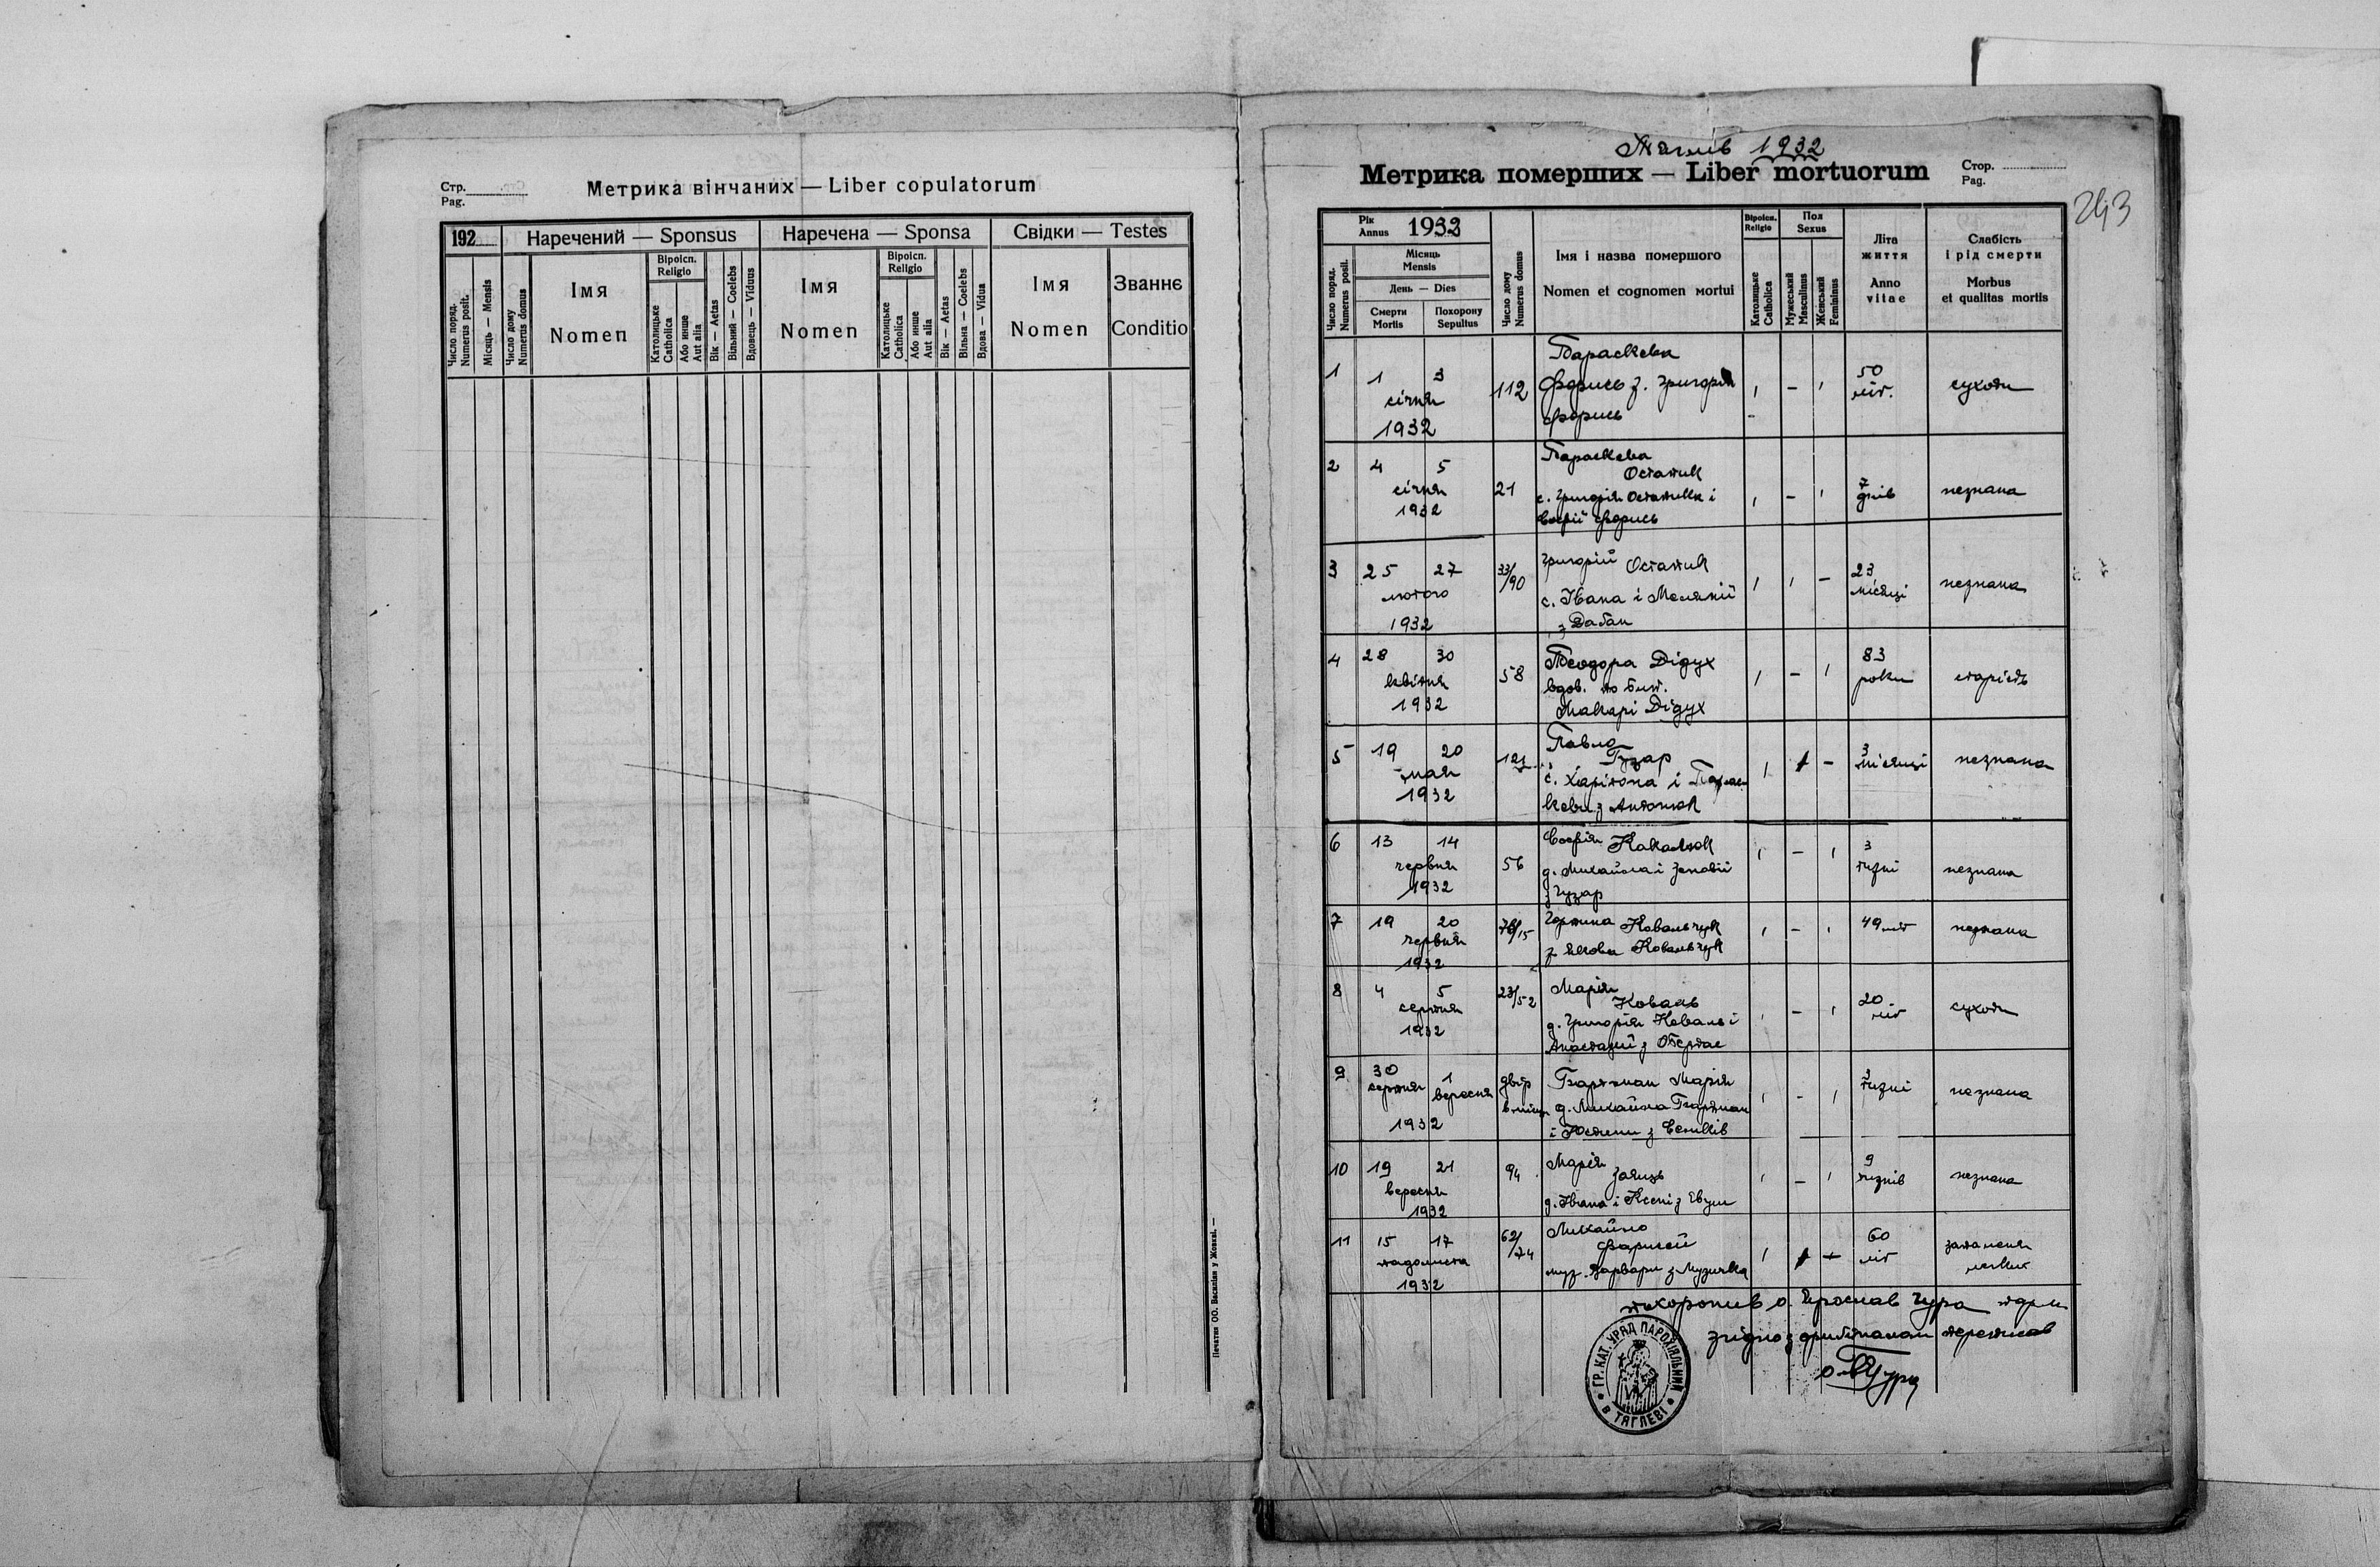 Стр.
Pag.
Метрика вінчаних — Liber copulatorum
192
Наречений — Sponsus
Наречена — Sponsa
Свідки — Testes
Число поряд.
Numerus posit.
Місяць — Mensis
Число дому
Numerus domus
Імя
Nomen
Віроісп.
Religio
Католицьке
Catholica
Або инше
Aut alia
Вік — Aetas
Вільний — Coelebs
Вдовець — Viduus
Імя
Nomen
Віроісп.
Religio
Католицьке
Catholica
Або инше
Aut alia
Вік — Aetas
Вільна — Coelebs
Вдова — Vidua
Імя
Nomen
Званнє
Conditio
Печатня ОО. Василіян у Жовкві. —
Тяглів 1932
Метрика померших — Liber mortuorum
Стор.
Pag.
243
Рік
Annus 1932
Число поряд.
Numerus posit.
Місяць
Mensis
День — Dies
Смерти
Mortis
Похорону
Sepultus
Число дому
Numerus domus
Імя і назва помершого
Nomen et cognomen mortui
Віроісп.
Religio
Католицьке
Catholica
Пол
Sexus
Мужеський
Masculinus
Женський
Femininus
Літа
життя
Anno
vitae
Слабість
і рід смерти
Morbus
et qualitas mortis
1 1 3 січня 1932 112
Параскева
Федорис ж. Григорія
Федорис
50 літ. сухоти
2 4 5 січня 1932 21
Параскева
Остапик
с. Григорія Остапика і
Софії Федорис
7 днів незнана
3 25 27 лютого 1932 33/90
Григорій Остапик
с. Івана і Меланії
з
23 місяці незнана
4 28 30 квітня 1932 58
Теодора Дідух
вдов. по бл.
Макарі Дідух
83 роки старість
5 19 20 мая 1932 121
Павло
Гузар
с. Харітона і Парас-
кеви з Антонюк
3 місяці незнана
6 13 14 червня 1932 56
Софія
д. Михайла і Зеновії
з Гузар
3 тижні незнана
7 19 20 червня 1932 76/15
Ковальчук
ж. Якова Ковальчук
49 літ незнана
8 4 5 серпня 1932 23/52
Марія
Коваль
д. Григорія Коваль і
Анастазії з
20 літ сухоти
9 30 серпня 1 вересня 1932 двір
Марія
д. Михайла
і Юстини з
3 тижні незнана
10 19 21 вересня 1932 94
Марія
Заяць
д. Івана і Ксені з
9 тижнів незнана
11 15 17 падолиста 1932 62/74
Михайло
муж. Варвари з Музичка
60 літ запаленя легких
похоронив о. Ярослав Чура парох
згідно з оригіналом переписав
о. Я Чура
ГР. КАТ. УРЯД ПАРОХІЯЛЬНИЙ
В ТЯГЛЕВІ